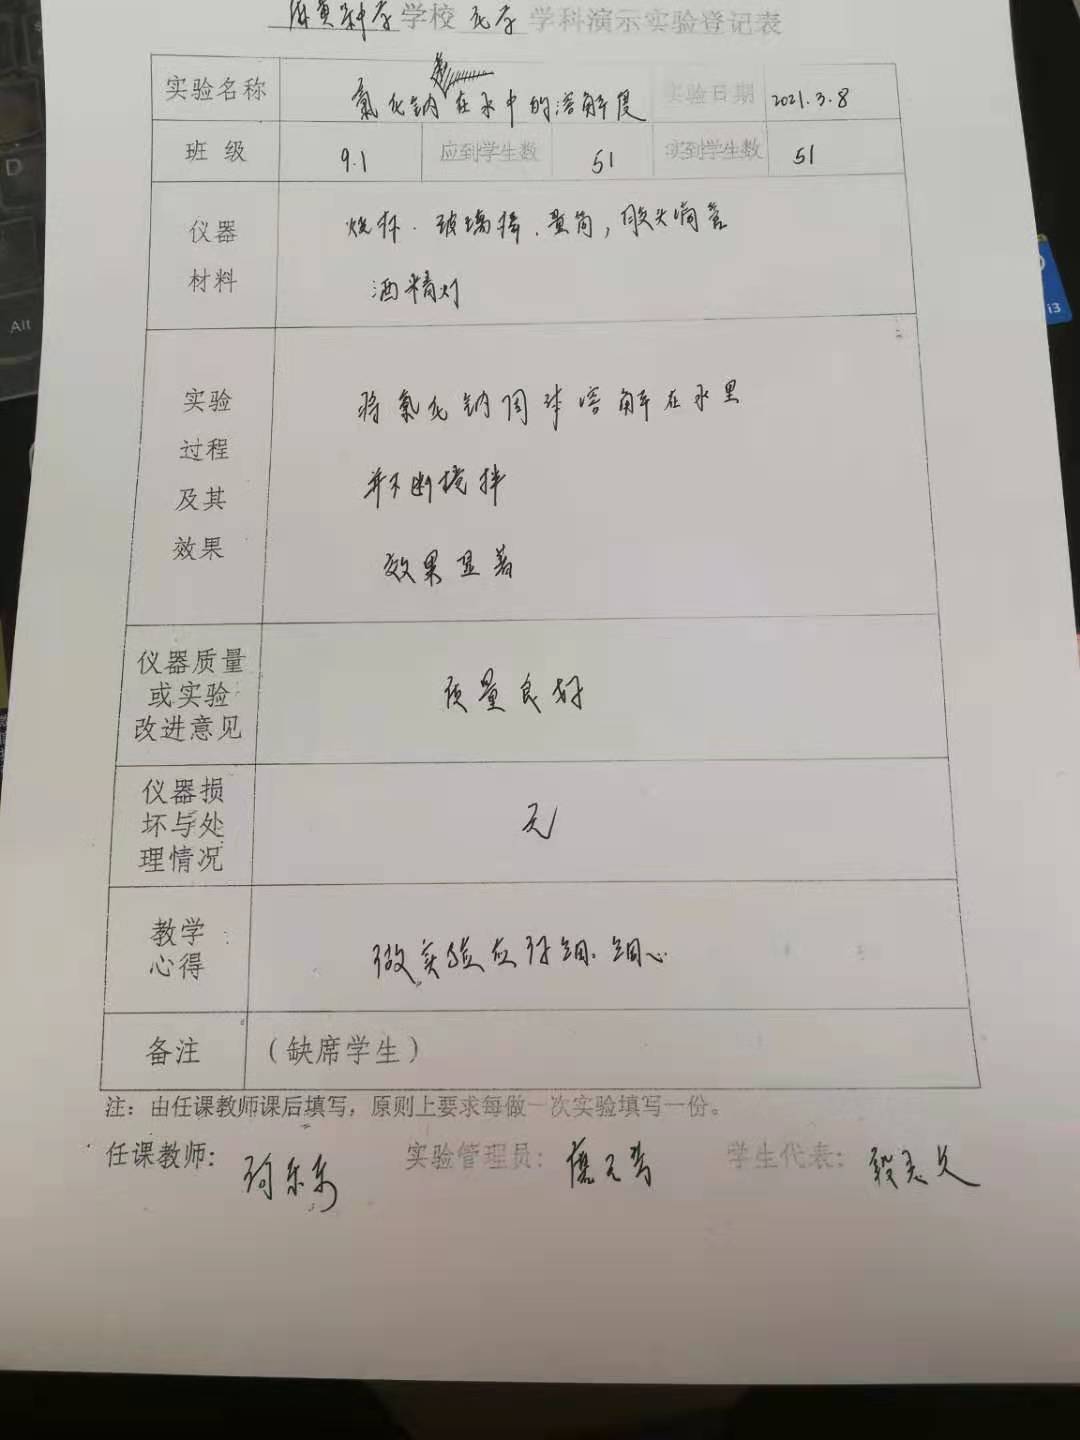 学校 化学 学科演示实验登记表
实验名称 氯化钠在水中的溶解度 实验日期 2021.3.8
班级 9.1 应到学生数 51 实到学生数 51
仪器 烧杯.玻璃棒.量筒,胶头滴管
材料 酒精灯
实验 将氯化钠固体溶解在水里
过程
及其 并不断搅拌
效果 效果显著
仪器质量
或实验 质量良好
改进意见
仪器损
坏与处 无
理情况
教学
心得 做实验应仔细.细心
备注 (缺席学生)
注:由任课教师课后填写,原则上要求每做一次实验填写一份。
任课教师: 实验管理员: 学生代表:
Alt
D
i3